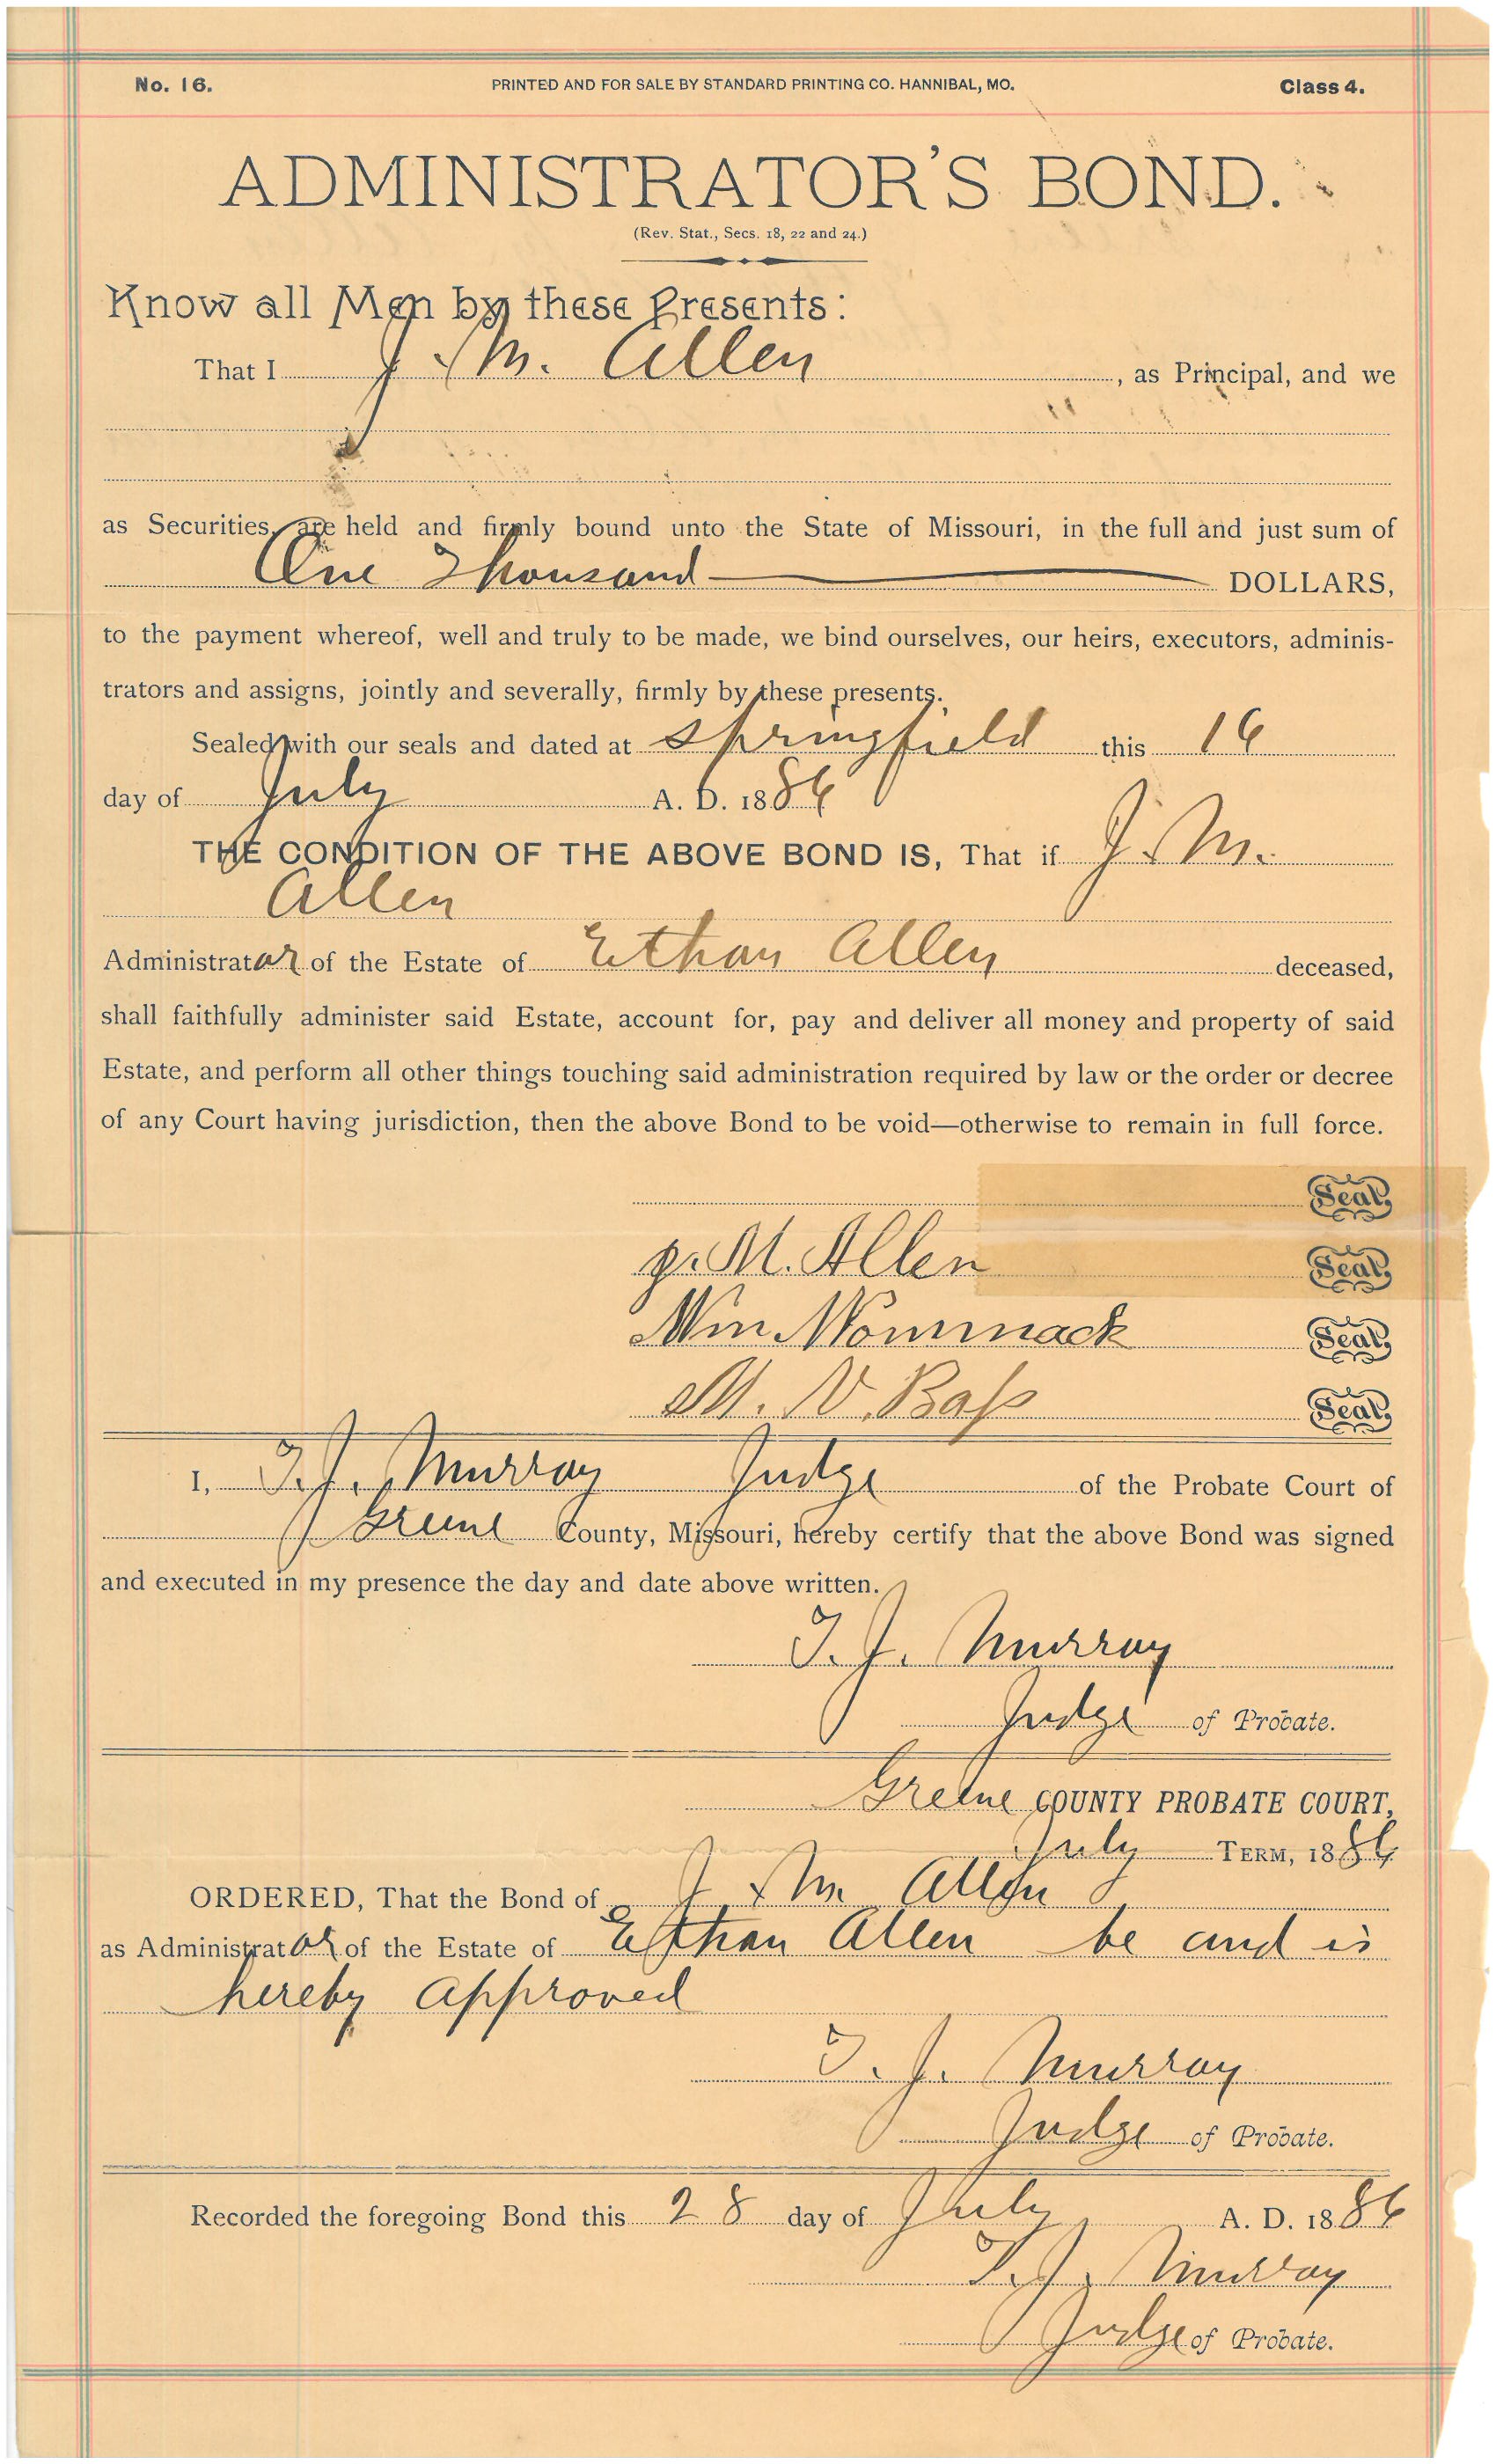 No. 16. PRINTED AND FOR SALE BY STANDARD PRINTING CO. HANNIBAL, MO. Class 4.
ADMINISTRATOR'S BOND.
(Rev. Stat., Secs. 18, 22 and 24.)
Know all Men by these Presents:
That I J. M. Allen, as Principal, and we
as Securities, are held and firmly bound unto the State of Missouri, in the full and just sum of
One Thousand DOLLARS,
to the payment whereof, well and truly to be made, we bind ourselves, our heirs, executors, adminis-
trators and assigns, jointly and severally, firmly by these presents.
Sealed with our seals and dated at Springfield this 16
day of July A. D. 1886
THE CONDITION OF THE ABOVE BOND IS, That if J. M.
Allen
Administrator of the Estate of Ethan Allen deceased,
shall faithfully administer said Estate, account for, pay and deliver all money and property of said
Estate, and perform all other things touching said administration required by law or the order or decree
of any Court having jurisdiction, then the above Bond to be void—otherwise to remain in full force.
Seal
J. M. Allen Seal
Wm. Wommack Seal
M. V. Bass Seal
I, T. J. Murray Judge of the Probate Court of
Greene County, Missouri, hereby certify that the above Bond was signed
and executed in my presence the day and date above written.
T. J. Murray
Judge of Probate.
Greene COUNTY PROBATE COURT,
July TERM, 1886
ORDERED, That the Bond of J. M. Allen
as Administrator of the Estate of Ethan Allen be and is
hereby approved
T. J. Murray
Judge of Probate.
Recorded the foregoing Bond this 28 day of July A. D. 1886
T. J. Murray
Judge of Probate.